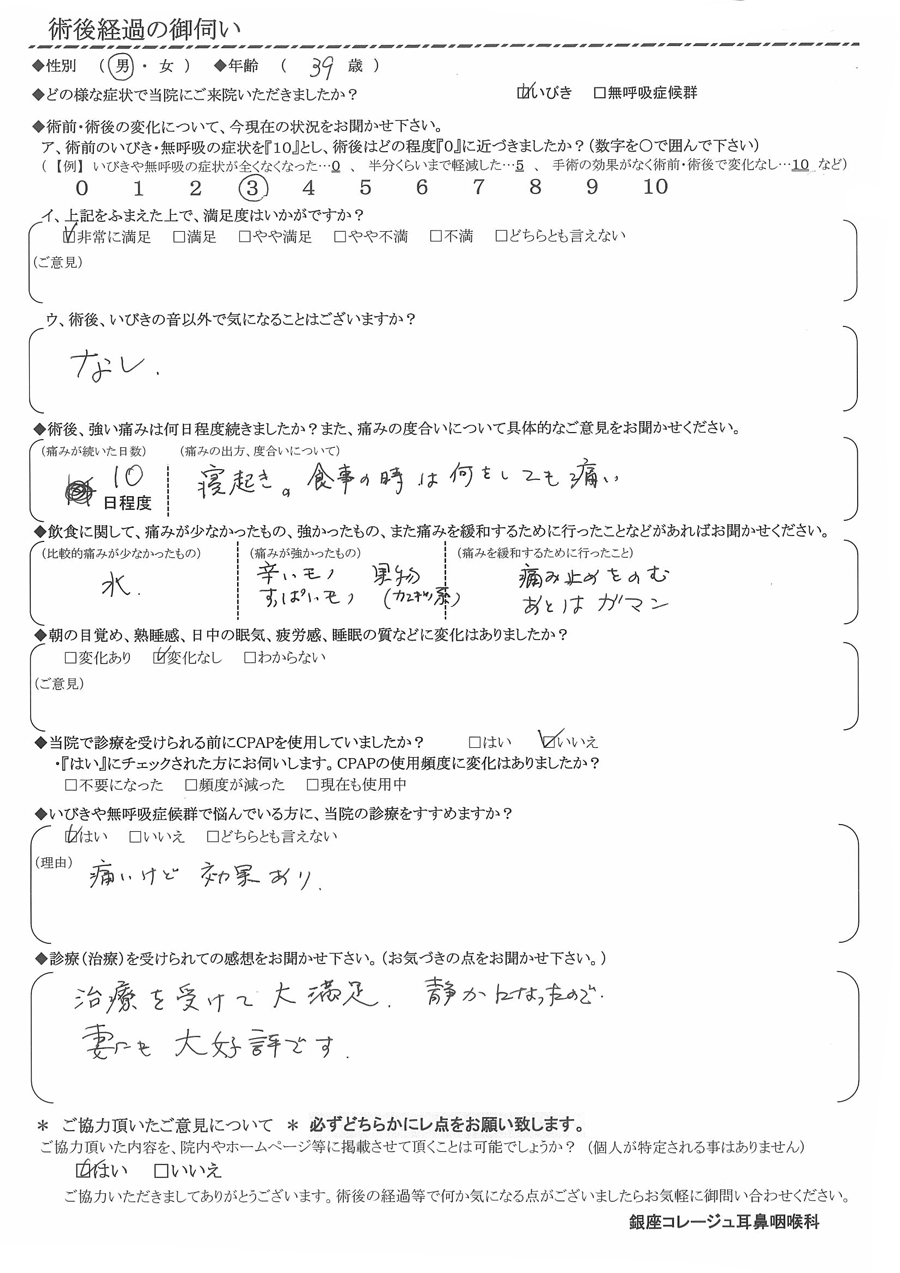 術後経過の御伺い
◆性別 ( 男 ・ 女 ) ◆年齢 ( 39 歳 )
◆どの様な症状で当院にご来院いただきましたか? ☑いびき □無呼吸症候群
◆術前・術後の変化について、今現在の状況をお聞かせ下さい。
ア、術前のいびき・無呼吸の症状を『10』とし、術後はどの程度『0』に近づきましたか?(数字を○で囲んで下さい)
(【例】いびきや無呼吸の症状が全くなくなった…0 、 半分くらいまで軽減した…5 、 手術の効果がなく術前・術後で変化なし…10 など)
0 1 2 ③ 4 5 6 7 8 9 10
イ、上記をふまえた上で、満足度はいかがですか?
☑非常に満足 □満足 □やや満足 □やや不満 □不満 □どちらとも言えない
(ご意見)
ウ、術後、いびきの音以外で気になることはございますか?
なし.
◆術後、強い痛みは何日程度続きましたか?また、痛みの度合いについて具体的なご意見をお聞かせください。
(痛みが続いた日数) (痛みの出方、度合いについて)
10 日程度 寝起き。食事の時は何をしても痛い
◆飲食に関して、痛みが少なかったもの、強かったもの、また痛みを緩和するために行ったことなどがあればお聞かせください。
(比較的痛みが少なかったもの) (痛みが強かったもの) (痛みを緩和するために行ったこと)
水. 辛いモノ 果物 痛み止めをのむ
すっぱいモノ (カンキツ系) あとはガマン
◆朝の目覚め、熟睡感、日中の眠気、疲労感、睡眠の質などに変化はありましたか?
□変化あり ☑変化なし □わからない
(ご意見)
◆当院で診療を受けられる前にCPAPを使用していましたか? □はい ☑いいえ
・『はい』にチェックされた方にお伺いします。CPAPの使用頻度に変化はありましたか?
□不要になった □頻度が減った □現在も使用中
◆いびきや無呼吸症候群で悩んでいる方に、当院の診療をすすめますか?
☑はい □いいえ □どちらとも言えない
(理由) 痛いけど 効果あり.
◆診療(治療)を受けられての感想をお聞かせ下さい。(お気づきの点をお聞かせ下さい。)
治療を受けて大満足. 静かになったので.
妻にも 大好評です.
＊ ご協力頂いたご意見について ＊ 必ずどちらかにレ点をお願い致します。
ご協力頂いた内容を、院内やホームページ等に掲載させて頂くことは可能でしょうか? (個人が特定される事はありません)
☑はい □いいえ
ご協力いただきましてありがとうございます。術後の経過等で何か気になる点がございましたらお気軽に御問い合わせください。
銀座コレージュ耳鼻咽喉科